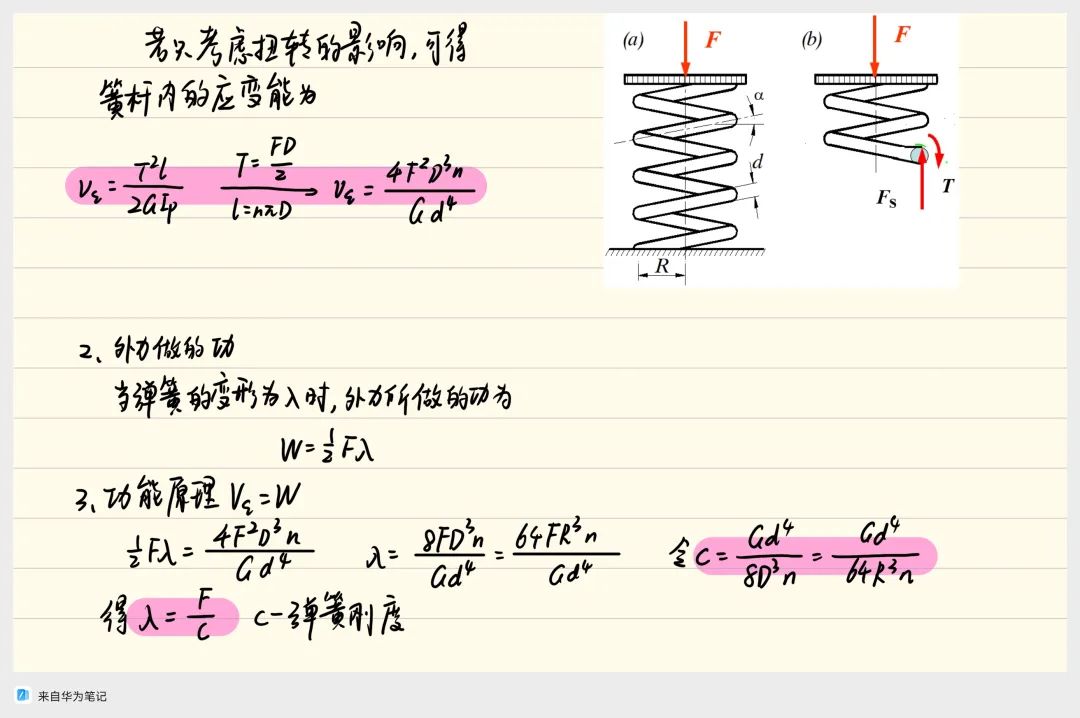 若只考虑扭转的影响,可得
簧杆内的应变能为
Vε = T²l / 2GIp  T = FD/2  l = nπD → Vε = 4F²D³n / Gd⁴
(a) F α d R
(b) F Fs T
2、外力做的功
当弹簧的变形为λ时,外力所做的功为
W = ½Fλ
3、功能原理 Vε = W
½Fλ = 4F²D³n / Gd⁴  λ = 8FD³n / Gd⁴ = 64FR³n / Gd⁴  令 C = Gd⁴ / 8D³n = Gd⁴ / 64R³n
得 λ = F / C  C-弹簧刚度
来自华为笔记